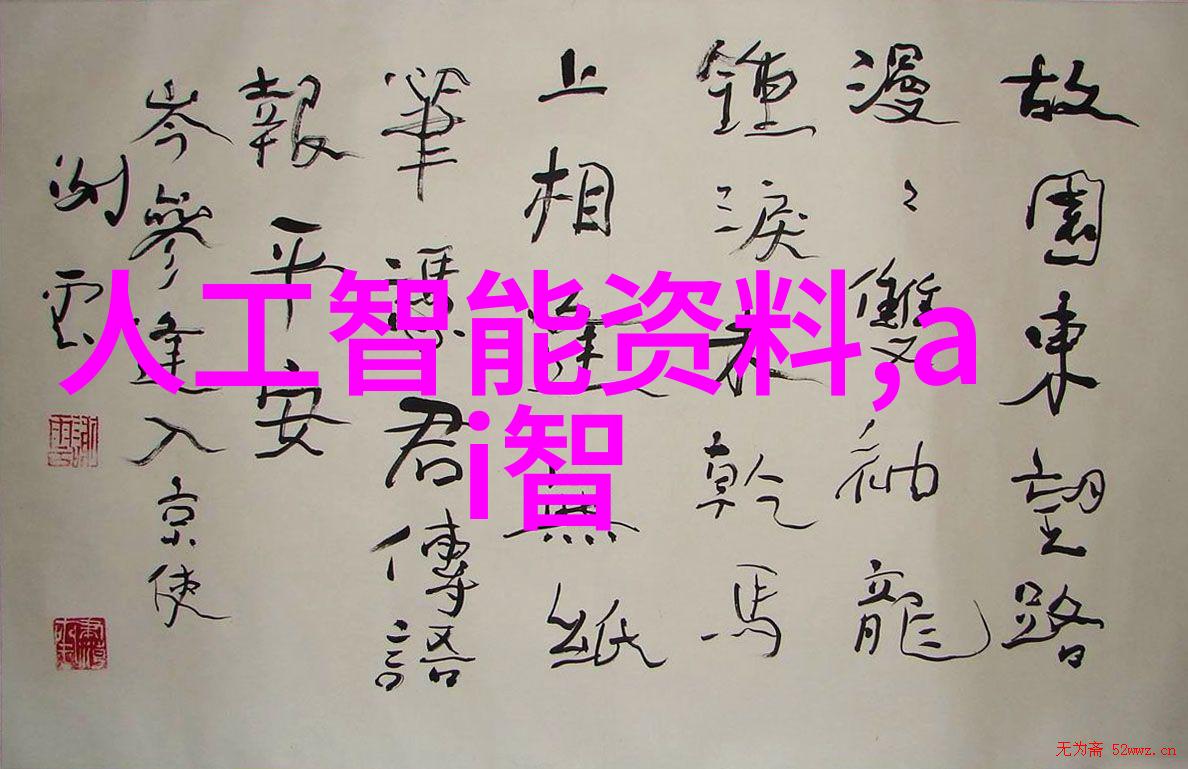 故園東望路
漫〻雙袖龍
鍾淚不乾馬
上相逢無紙
筆憑君傳語
報平安
岑參逢入京使
謝雲
人工智能资料,a
i智
无为斋 52wwz.cn